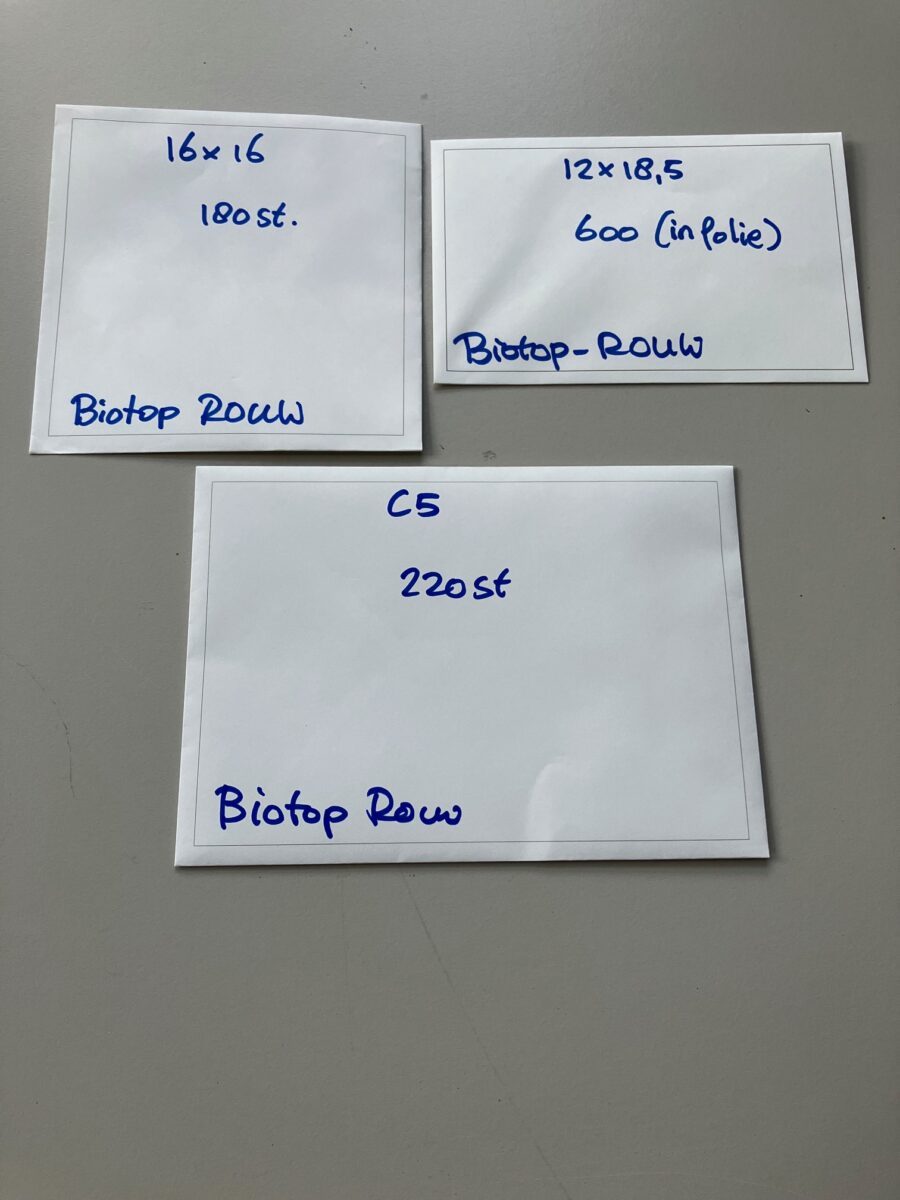 16x16
180st.
Biotop ROUW
12x18,5
600 (in folie)
Biotop-ROUW
C5
220st
Biotop Rouw